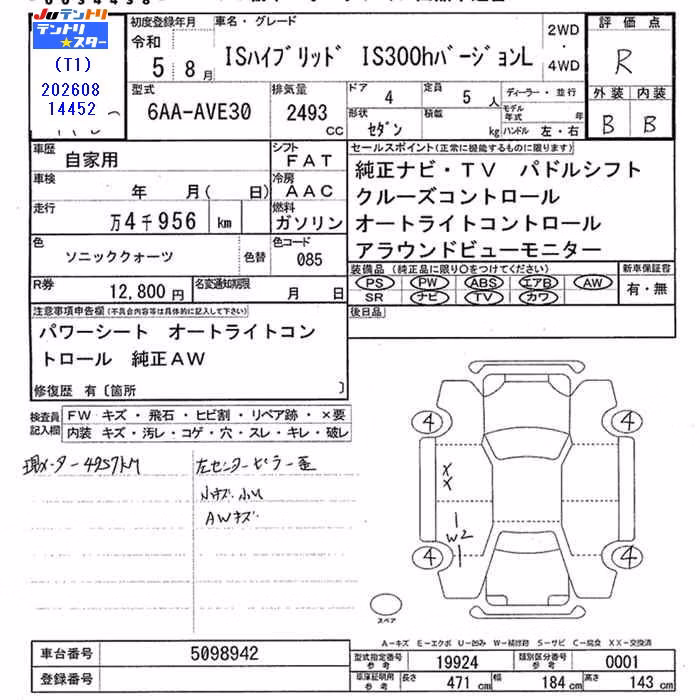 Juテントリ
テントリ
★スター
(T1)
202608
14452
初度登録年月
令和
5 8月
車名・グレード
ISハイブリッド IS300hバージョンL
2WD
・
4WD
評価点
R
外装 内装
B B
型式
6AA-AVE30
排気量
2493
CC
ドア
4
定員
5 人
形状
セダン
積載
kg
ディーラー・並行
モデル
年式 年
ハンドル 左・右
車歴
自家用
シフト
FAT
車検
年 月( 日)
冷房
AAC
走行
万4千956 km
燃料
ガソリン
色
ソニッククォーツ
色替
色コード
085
R券
12,800円
名変通知期限
月 日
セールスポイント(正常に機能するものに限ります)
純正ナビ・TV パドルシフト
クルーズコントロール
オートライトコントロール
アラウンドビューモニター
装備品 (純正品に限り○をつけてください)
PS PW ABS エアB AW
SR ナビ TV カワ
新車保証書
有・無
後日品
注意事項申告欄(不具合内容等は具体的に記入して下さい)
パワーシート オートライトコン
トロール 純正AW
修復歴 有〔箇所 〕
検査員
記入欄
FW キズ・飛石・ヒビ割・リペア跡・×要
内装 キズ・汚レ・コゲ・穴・スレ・キレ・破レ
現メーター4957KM
左センターピラー歪
小キズ.小U
AWキズ
4 4
X
X
W2
4 4
スペア
A-キズ E-エクボ U-凹み W-補修跡 S-サビ C-腐食 XX-交換済
車台番号
5098942
登録番号
型式指定番号
参考
19924
類別区分番号
参考
0001
車庫証明用
参考
長さ
471 cm
幅
184 cm
高さ
143 cm